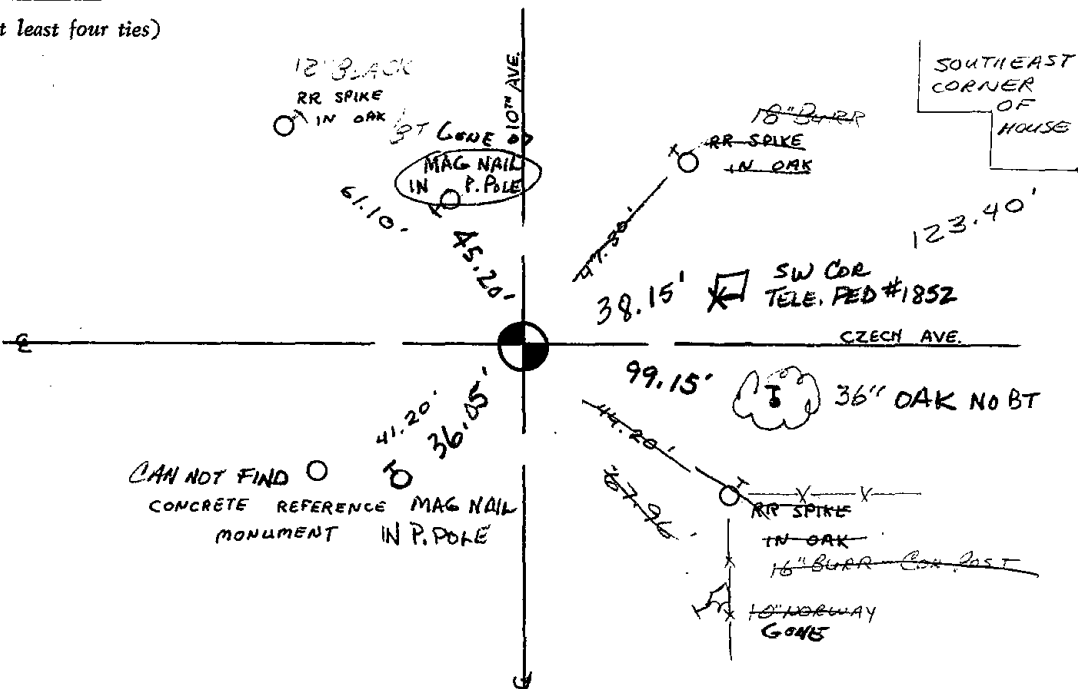 t least four ties)
12" BLACK
RR SPIKE
IN OAK
BT GONE
MAG NAIL
IN P. POLE
10TH AVE.
61.10'
45.20'
18" BURR
RR SPIKE
IN OAK
47.50'
SOUTHEAST
CORNER
OF
HOUSE
123.40'
38.15'
SW COR
TELE. PED #1852
CZECH AVE.
99.15'
36" OAK NO BT
41.20'
36.05'
CAN NOT FIND
CONCRETE REFERENCE
MONUMENT
MAG NAIL
IN P. POLE
44.20'
67.96'
RR SPIKE
IN OAK
16" BURR COR. POST
10" NORWAY
GONE